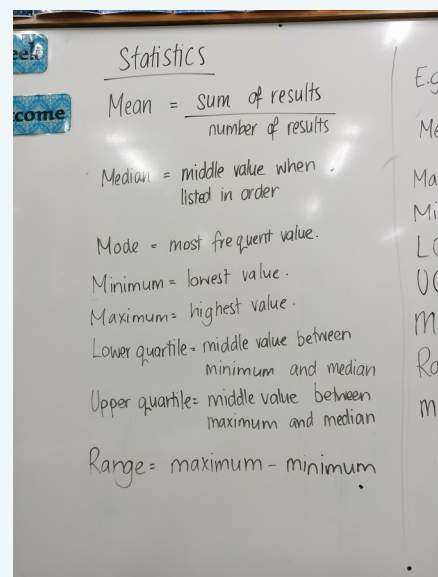 eek
come
Statistics
Mean = sum of results
number of results
Median = middle value when
listed in order
Mode = most frequent value.
Minimum = lowest value.
Maximum = highest value.
Lower quartile = middle value between
minimum and median
Upper quartile = middle value between
maximum and median
Range = maximum - minimum
E.g
Me
Ma
Mi
LQ
UQ
m
Ra
m